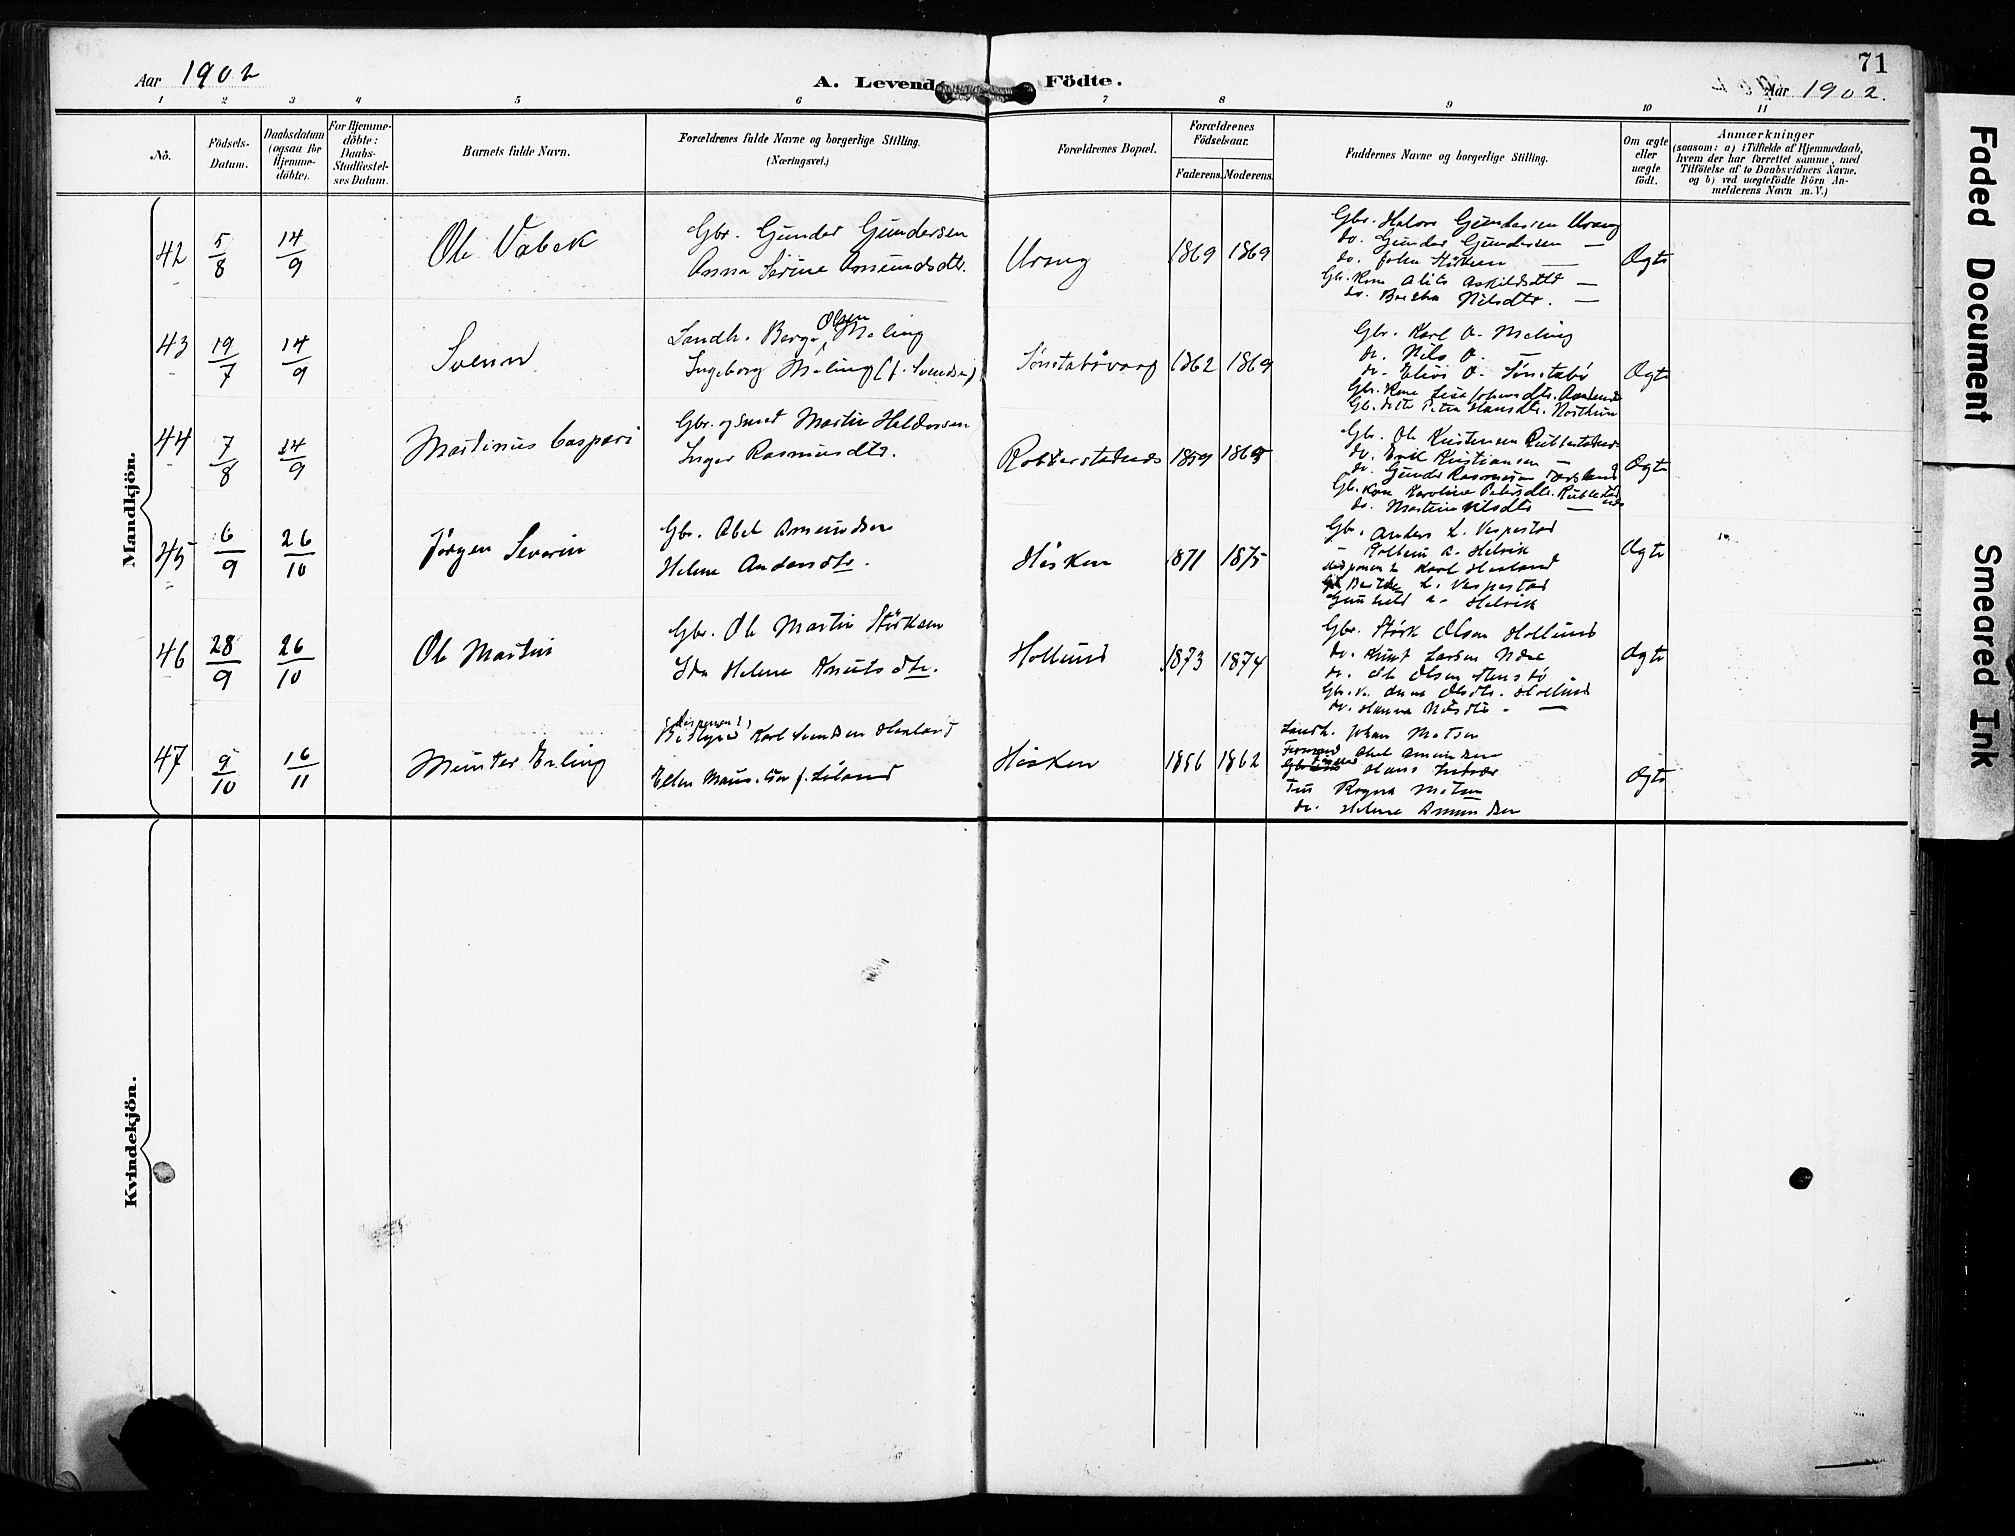 71
Aar 1902
A. Levende Födte.
Aar 1902.
1 2 3 4 5 6 7 8 9 10 11
No.
Födsels-
Datum.
Daabsdatum
(ogsaa for
Hjemme-
döbte).
For Hjemme-
döbte:
Daabs-
Stadfæstel-
ses Datum.
Barnets fulde Navn.
Forældrenes fulde Navne og borgerlige Stilling.
(Næringsvei.)
Forældrenes Bopæl.
Forældrenes
Födselsaar.
Faderens. Moderens.
Faddernes Navne og borgerlige Stilling.
Om ægte
eller
uægte
födt.
Anmærkninger
(saasom: a) i Tilfælde af Hjemmedaab,
hvem der har forrettet samme, med
Tilföielse af to Daabsvidners Navne.
og b) ved uægtefödte Börn An-
melderens Navn m. V.)
Mandkjön.
42
5/8
14/9
Ole Vabek
Gbr. Gunder Gundersen
Anna Serine Amundsdtr.
Urang
1869 1869
Gbr. Halvor Gundersen Urang
do. Gunder Gundersen —
do. John
Gbr. Kone Alits Askildsdtr —
do. Nilsdtr. —
Ægte
43
19/7
14/9
Svenn
Landh. Berge Olsen Meling
Ingeborg Meling (f. Svendsen)
Sönstabövaag
1862 1869
Gbr. Karl O. Meling
do. Nils O. —
do. Elias O. Sönstabö
Gbr. Kone
Gb. datter
Ægte
44
7/8
14/9
Martinus Caspari
Gbr. og smed Martin Haldorsen
Inger Rasmusdtr.
1859 1865
Gbr. Ole Kristensen
do. Emil Kristiansen
do. Gunder Rasmussen
Gb. Kone Karoline Petersdtr.
do. Martine Nilsdtr —
Ægte
45
6/9
26/10
Jörgen Severin
Gbr. Abel Amundsen
Helene Andersdtr.
Hisken
1871 1875
Gbr. Anders L. Vespestad
— Kolbein A. Helvik
Disponent Karl Haaland
L. Vespestad
Gunhild A. Helvik
Ægte
46
28/9
26/10
Ole Martin
Gbr. Ole Martin Störksen
Ida Helene Knutsdtr.
Hollund
1873 1874
Gbr. Störk Olsen Hollund
do. Knut Larsen
do. Ole Olsen
Gbr. k. Anna Olsdtr. Hollund
do. Hanna Nilsdtr. —
Ægte
47
9/10
16/11
Munter Erling
(Disponent)
Karl Svendsen Haaland
Hisken
1856 1862
Landh. Johan Matsen
Abel Amundsen
Hans
Fru Ragna Matsen
do. Helene Amundsen
Ægte
Kvindekjön.
Faded Document
Smeared Ink